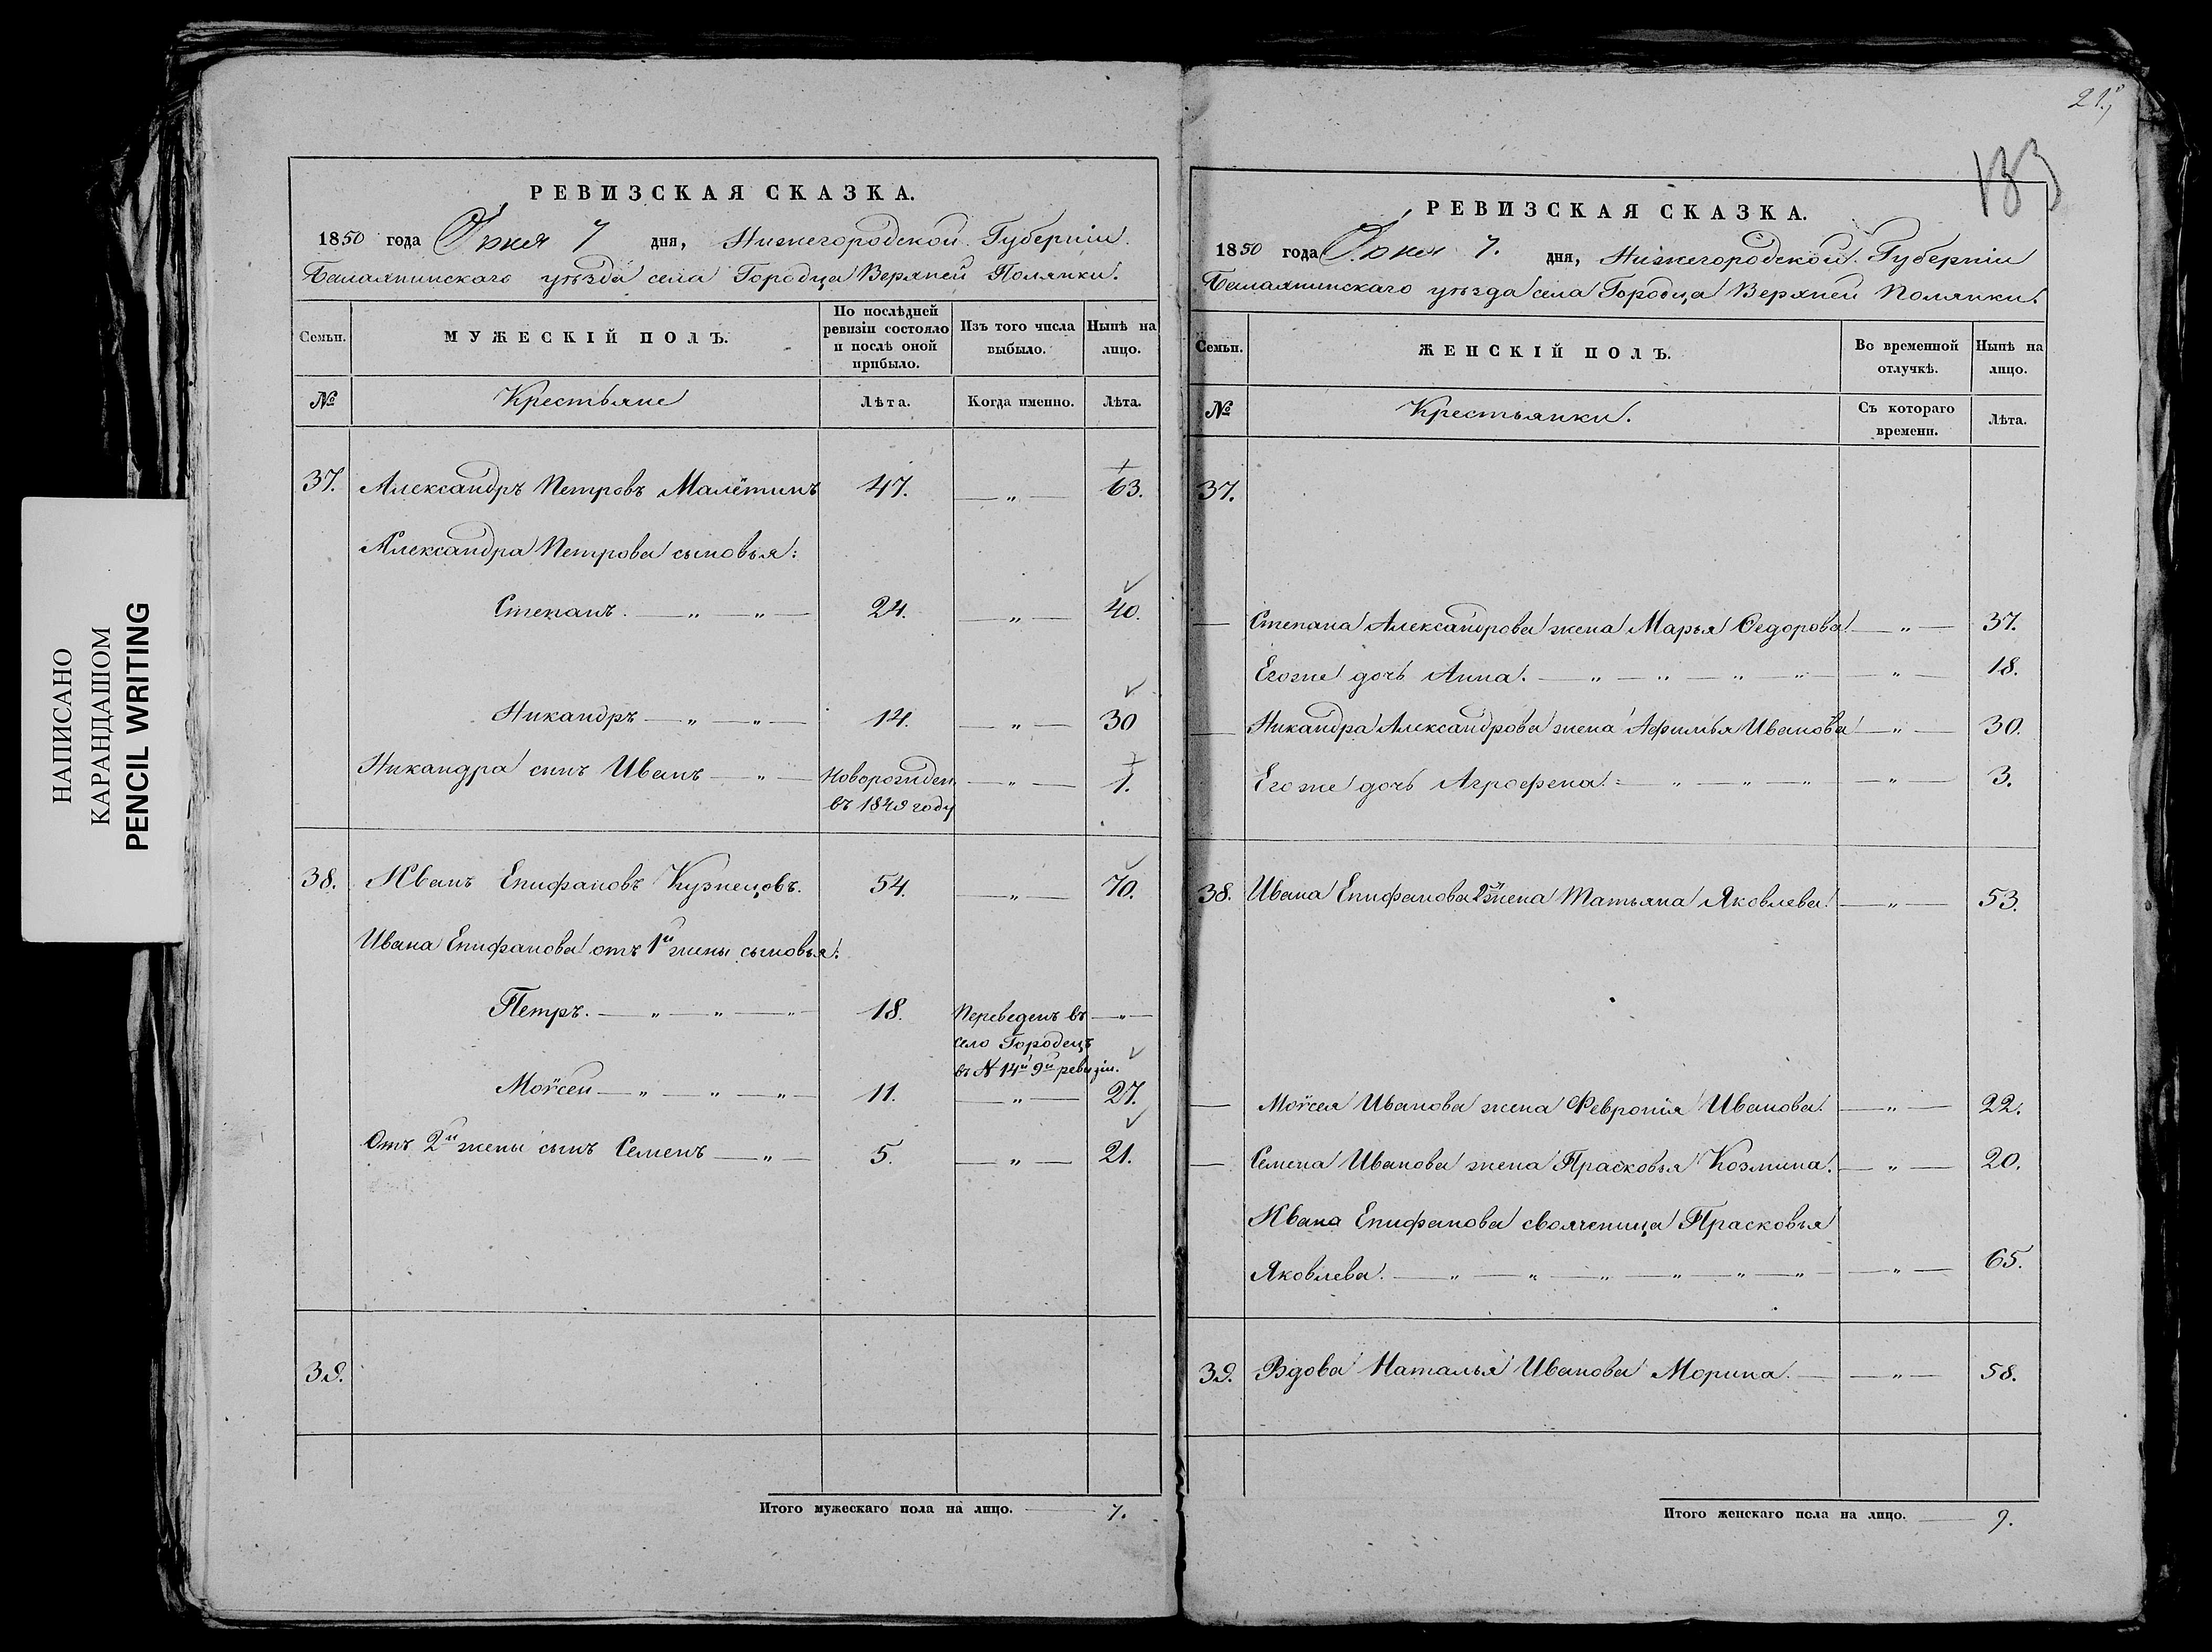 НАПИСАНО
КАРАНДАШОМ
PENCIL WRITING
РЕВИЗСКАЯ СКАЗКА.
1850 года Іюня 7 дня, Нижегородской Губерніи.
Балахнинскаго уѣзда села Городца Верхней Полянки.
Семьи.
МУЖЕСКІЙ ПОЛЪ.
По послѣдней
ревизіи состояло
и послѣ оной
прибыло.
Изъ того числа
выбыло.
Нынѣ на
лицо.
№ Крестьяне Лѣта. Когда именно. Лѣта.
37. Александръ Петровъ Малётинъ 47. — „ — 63.
Александра Петрова сыновья:
Степанъ. — „ — „ — 24. — „ — 40.
Никандръ — „ — „ — 14. — „ — 30
Никандра сынъ Иванъ — „ — Новорожден. — „ — 1.
въ 1849 году
38. Иванъ Епифановъ Кузнецовъ. 54. — „ — 70.
Ивана Епифанова отъ 1й жены сыновья:
Петръ. — „ — „ — „ — 18. Переведенъ въ — „ —
село Городецъ
въ N 14й 9й ревизіи.
Моѵсей — „ — „ — „ — 11. — „ — 27.
Отъ 2й жены сынъ Семенъ — „ — 5. — „ — 21.
39.
Итого мужескаго пола на лицо. — 7.
183
РЕВИЗСКАЯ СКАЗКА.
1850 года Іюня 7. дня, Нижегородской Губерніи
Балахнинскаго уѣзда села Городца Верхней Полянки.
Семьи.
ЖЕНСКІЙ ПОЛЪ.
Во временной
отлучкѣ.
Нынѣ на
лицо.
№ Крестьянки.
Съ котораго
времени.
Лѣта.
37.
— Степана Александрова жена Марья Ѳедорова — „ — 37.
Егоже дочь Анна. — „ — „ — „ — „ — „ — 18.
— Никандра Александрова жена Афимья Иванова — „ — 30.
Егоже дочь Агрофена. — „ — „ — „ — „ — 3.
38. Ивана Епифанова 2я жена Татьяна Яковлева. — „ — 53.
— Моѵсея Иванова жена Февронія Иванова. — „ — 22.
— Семена Иванова жена Прасковья Козмина. — „ — 20.
Ивана Епифанова своячeница Прасковья
Яковлева. — „ — „ — „ — „ — „ — „ — „ — 65.
39. Вдова Наталья Иванова Морина. — „ — 58.
Итого женскаго пола на лицо. — 9.